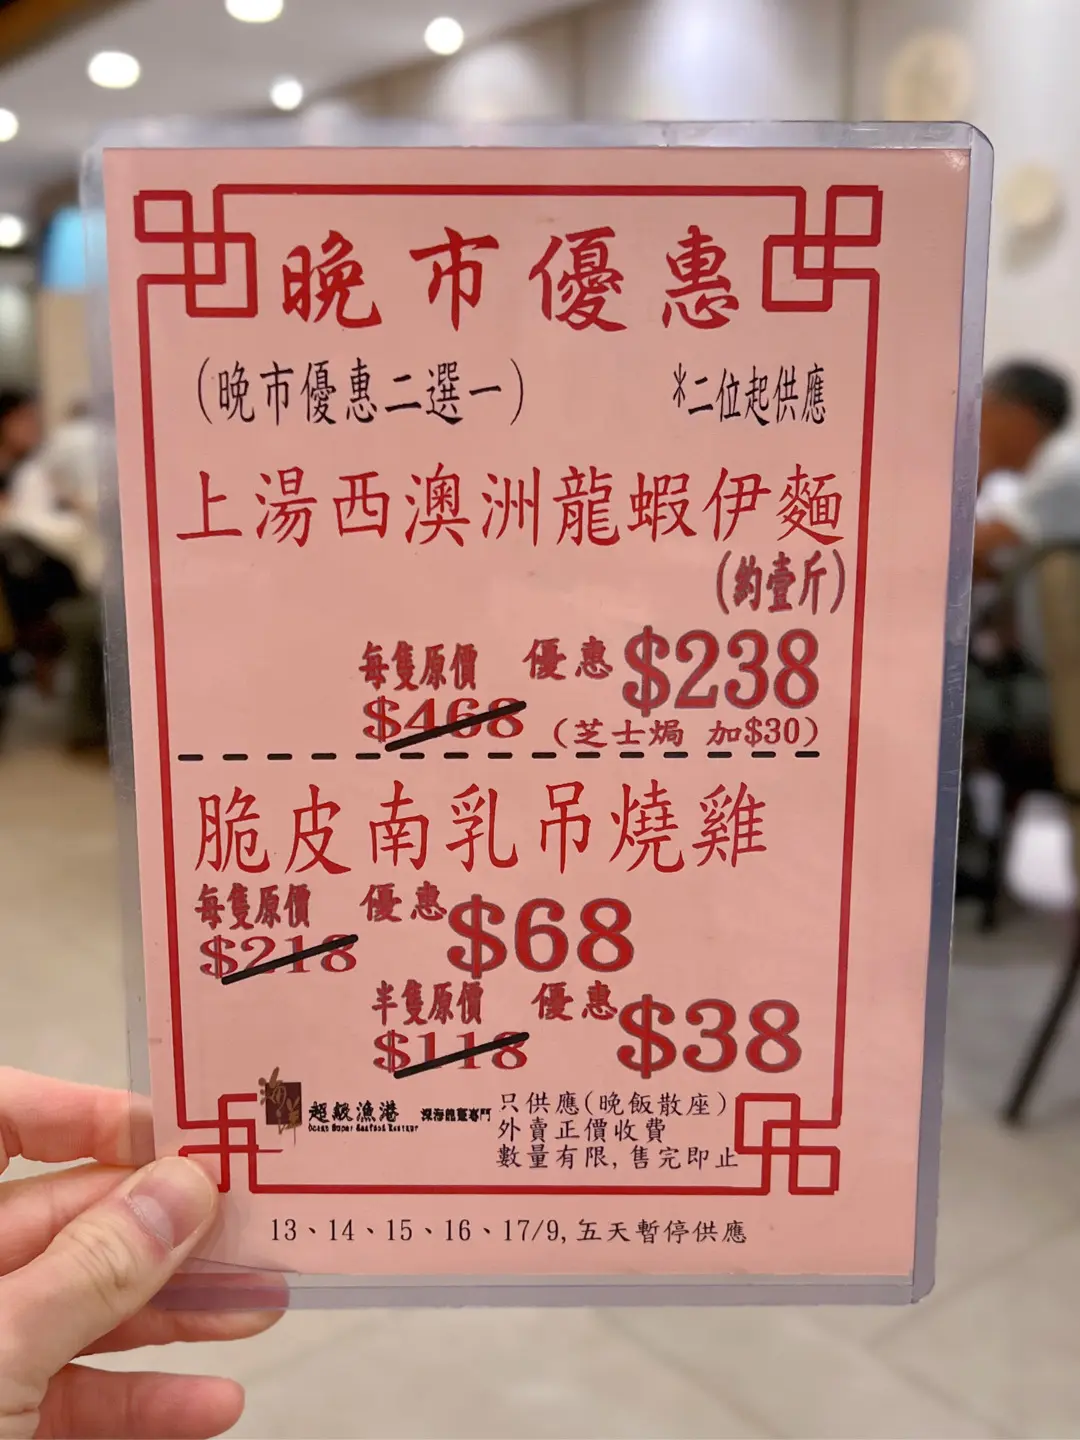 晚市優惠
(晚市優惠二選一) *二位起供應
上湯西澳洲龍蝦伊麵
(約壹斤)
每隻原價 優惠 $238
$468 (芝士焗 加$30)
脆皮南乳吊燒雞
每隻原價 優惠 $68
$218
半隻原價 優惠 $38
$118
海洋 超級漁港 深海龍躉專門
Ocean Super Seafood Restaur
只供應(晚飯散座)
外賣正價收費
數量有限, 售完即止
13、14、15、16、17/9, 五天暫停供應